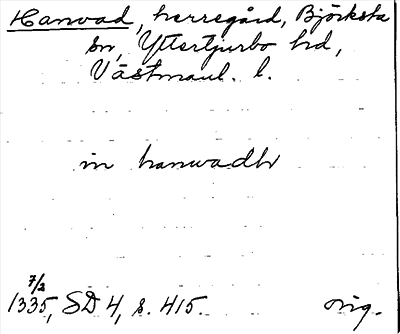 Hanvad, herregård, Björksta
sn, Yttertjurbo hd,
Västmanl. l.
in hanwadh
7/2
1335, SD 4, s. 415.
orig.